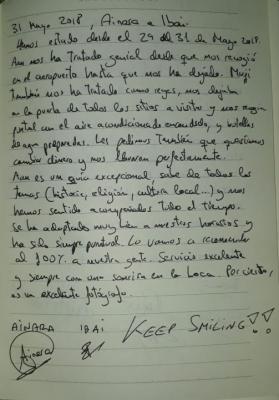 31 Mayo 2018, Ainara e Ibai
Hemos estado desde el 29 al 31 de Mayo 2018.
Aun nos ha tratado genial desde que nos recogió
en el aeropuerto hasta que nos ha dejado.
También nos ha tratado como reyes, nos dejaba
en la puerta de todos los sitios a visitar y nos
con el aire acondicionado encendido, y botellas
de agua preparadas. Les pedimos también que queríamos
cambiar dinero y nos llevaron perfectamente.
Aun es un guía excepcional, sabe de todos los
temas (historia, religión, cultura local...) y nos
hemos sentido acompañados todo el tiempo.
Se ha adaptado muy bien a nuestros horarios y
ha sido siempre puntual. Lo vamos a recomendar
al 100% a nuestra gente. Servicio excelente
y siempre con una sonrisa en la boca. Por cierto,
es un excelente fotógrafo.
AINARA IBAI KEEP SMILING!!
Ainara